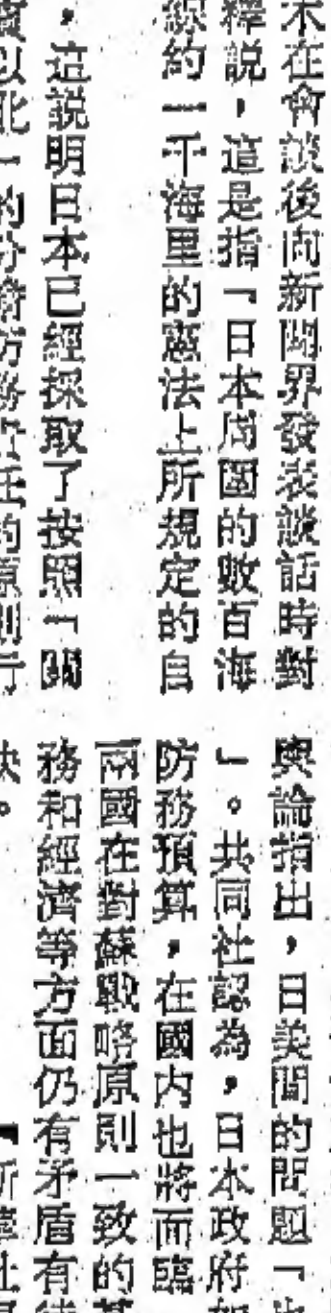 木在會談後向新聞界發表談話時對
釋説，這是指「日本周圍的數百海
線約一千海里的憲法上所規定的自
，這説明日本已經採取了按照「關
輿論指出，日美間的問題「
」。共同社認為，日本政府
防務預算，在國內也將面臨
兩國在對蘇戰略原則一致的
務和經濟等方面仍有矛盾有
決。